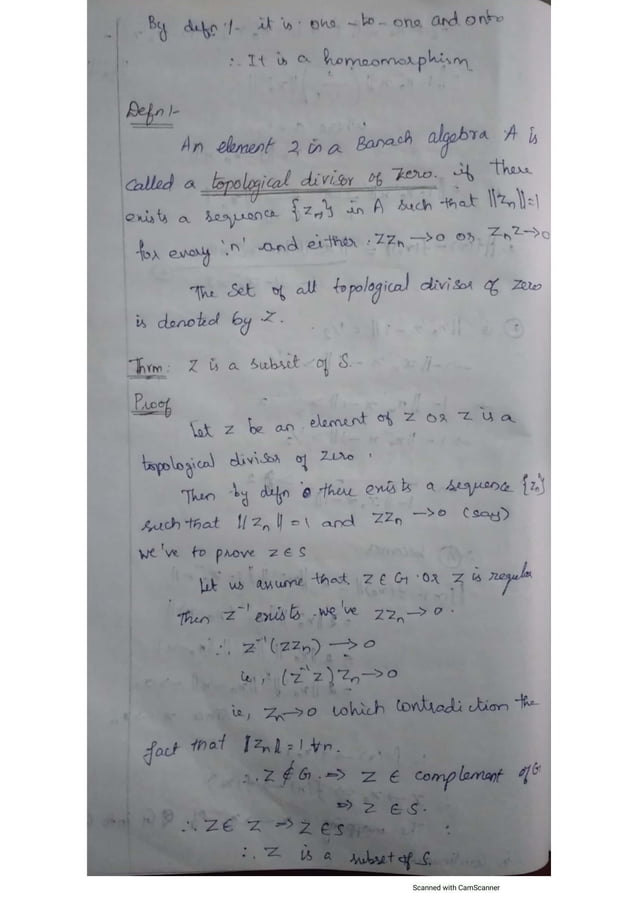 By defn :- it is one-to-one and onto
∴ It is a homeomorphism
Defn:-
An element z in a Banach algebra A is
called a topological divisor of zero. if there
exists a sequence {zₙ} in A such that ||zₙ||=1
for every 'n' and either zzₙ → 0 or zₙz → 0
The set of all topological divisor of zero
is denoted by Z.
Thrm: Z is a subset of S.
Proof
Let z be an element of Z or z is a
topological divisor of zero.
Then by defn there exists a sequence {zₙ}
such that ||zₙ|| = 1 and zzₙ → 0 (say)
we've to prove z ∈ S
Let us assume that, z ∈ G or z is regular
Then z⁻¹ exists. we've zzₙ → 0.
∴ z⁻¹(zzₙ) → 0
ie., (z⁻¹z)zₙ → 0
ie, zₙ → 0 which contradiction the
fact that ||zₙ|| = 1 ∀n.
∴ z ∉ G. ⇒ z ∈ complement of G
⇒ z ∈ S.
∴ z ∈ Z ⇒ z ∈ S
∴ Z is a subset of S.
Scanned with CamScanner